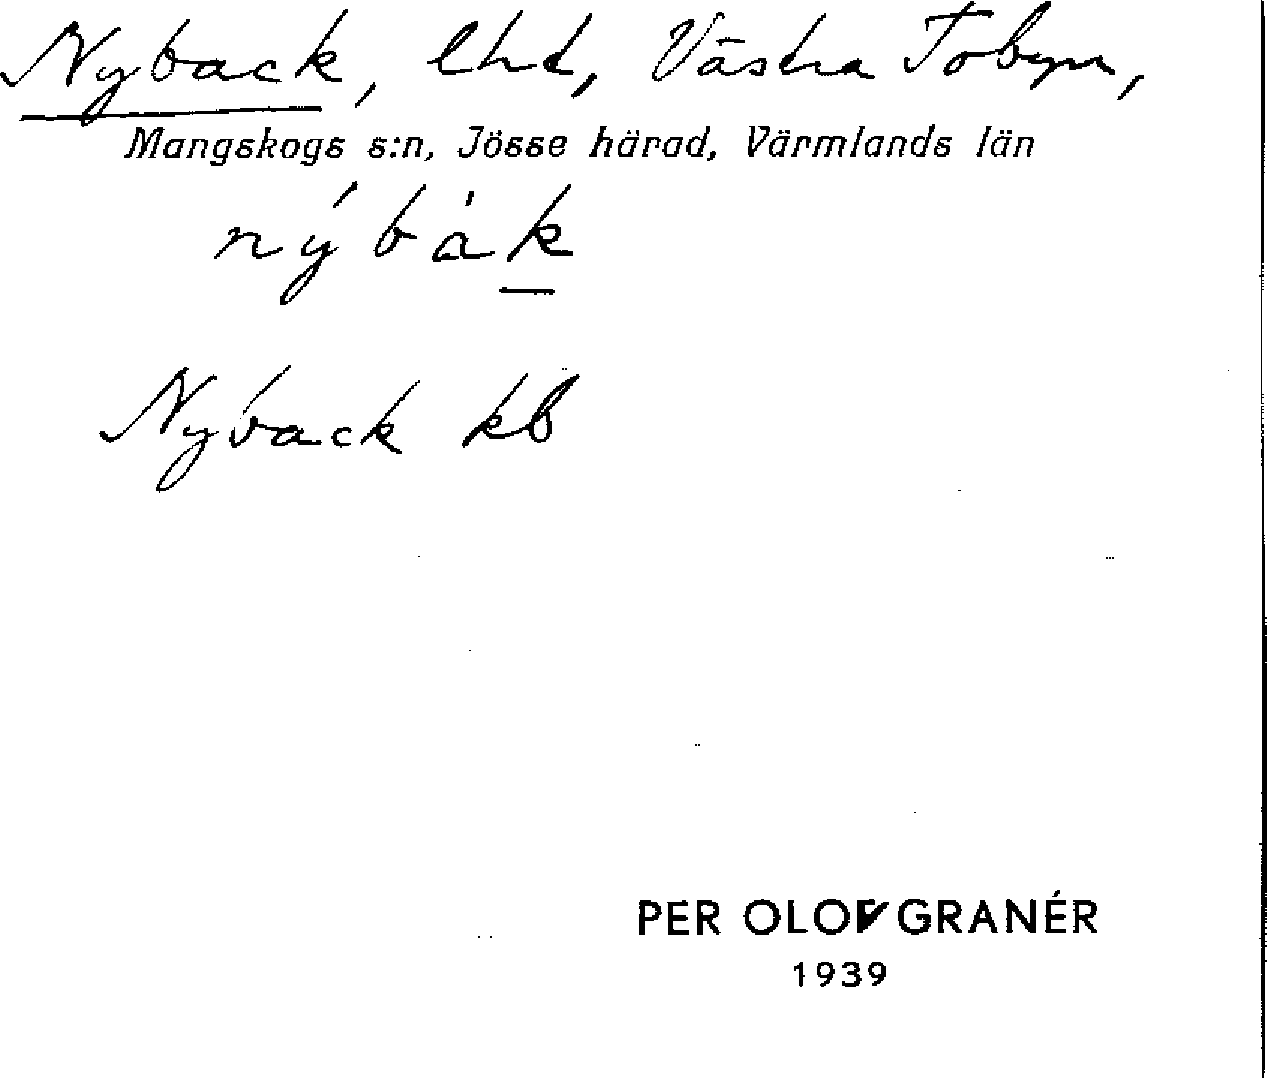 Nyback, lht, Västra Tobyn,
Mangskogs s:n, Jösse härad, Värmlands län
nýbàk
Nyback kb
PER OLOV GRANÉR
1939